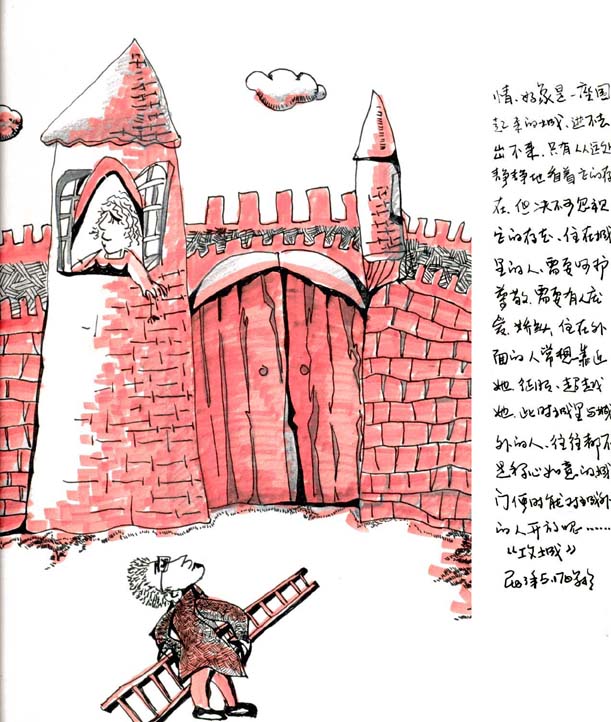 情、好象是一座围
起来的城、进不去
出不来、只有从远处
静静地看着它的存
在、但决不可忽视
它的存在、住在城
里的人、需要呵护
尊敬、需要有人庇
爱、娇纵、住在外
面的人常想靠近
她、征服、超越
她、此时城里与城
外的人、往往都不
是称心如意的城
门何时能对城外
的人开放呢……
《攻城》